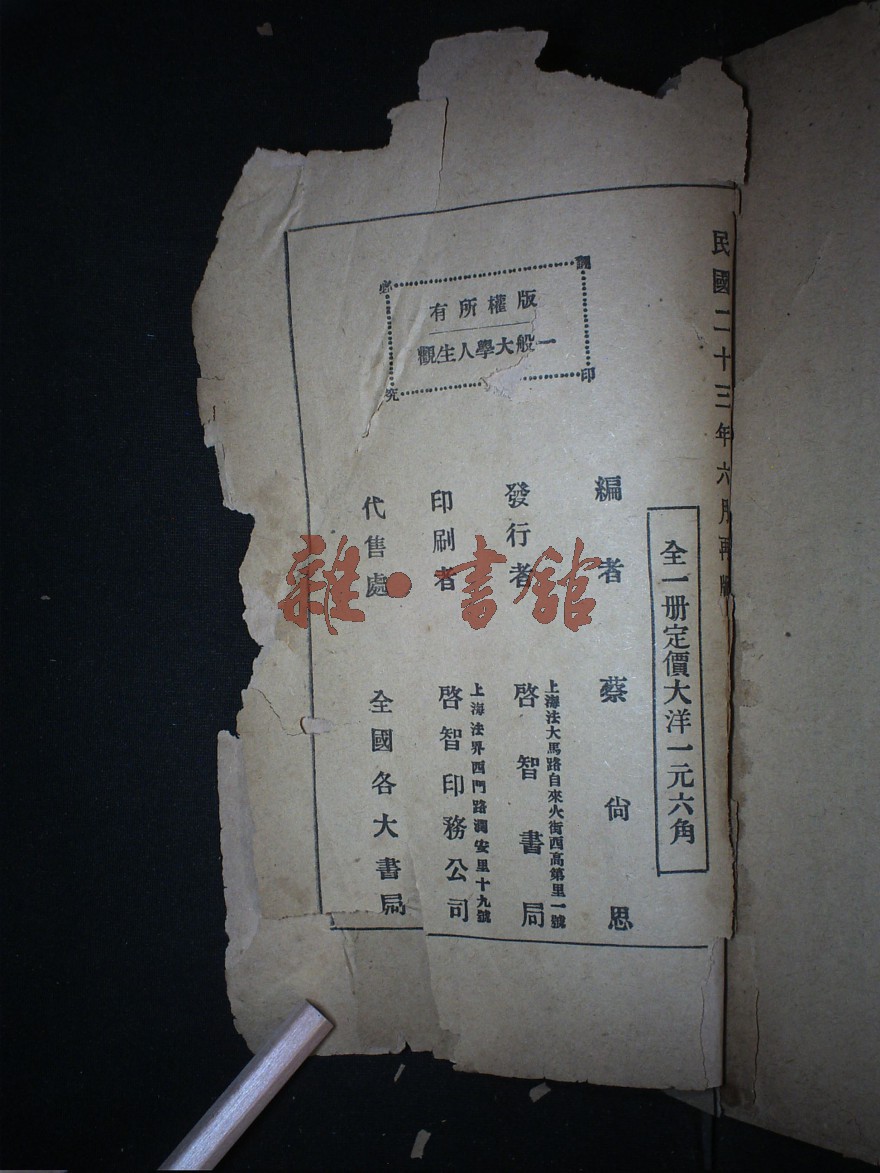 民國二十三年六月再版
全一册定價大洋一元六角
編者 蔡尙思
發行者 上海法大馬路自來火街西高第里一號
啓智書局
印刷者 上海法界西門路潤安里十九號
啓智印務公司
代售處 全國各大書局
版權所有
一般大學人生觀
翻印必究
雜·書館